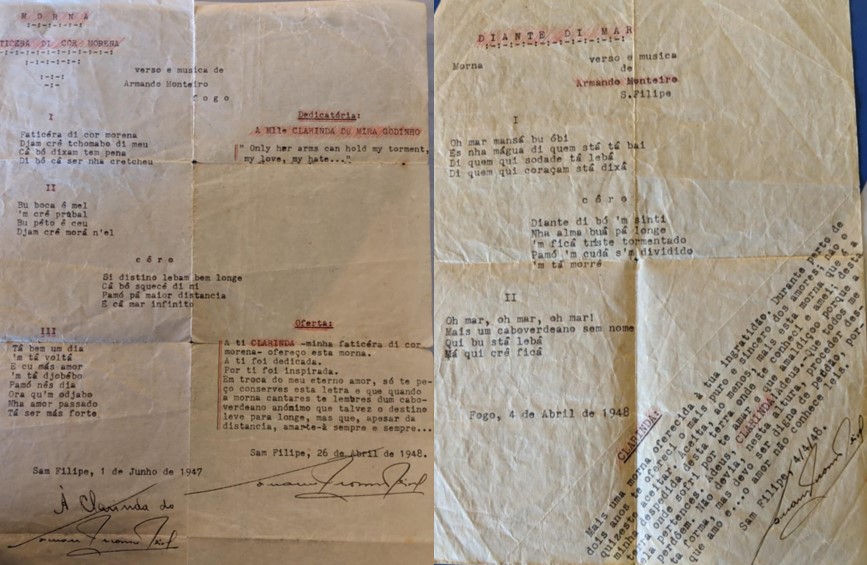 M O R N A
:-:-:-:-:
TICÉRA DI COR MORENA
:-:-:-:-:-:-:-:-:-:-:-:
:-:-:-:-:-:
:-:-:
-:-
verso e musica de
Armando Monteiro
f o g o
I
Faticéra di cor morena
Djam cré tchomabo di meu
Cá bô dixam tem pena
Di bô cá ser nha cretcheu
II
Bu boca ê mel
'm cré prabal
Bu pêto ê ceu
Djam cré morá n'el
c ô r o
Si distino lebam bem longe
Cá bô squecé di mi
Pamó pá maior distancia
E cá mar infinito
III
Tá bem um dia
'm tá voltá
E cu más amor
'm tá djobébo
Pamó nés dia
Ora qu'm odjabo
Nha amor passado
Tá ser más forte
Sam Filipe, 1 de Junho de 1947
À Clarinda do
Dedicatória:
A Mlle CLARINDA DE MIRA GODINHO
" Only her arms can hold my torment,
my love, my hate..."
Oferta:
A ti CLARINDA -minha faticéra di cor
morena- ofereço esta morna.
A ti foi dedicada.
Por ti foi inspirada.
Em troca do meu eterno amor, só te pe-
ço conserves esta letra e que quando
a morna cantares te lembres dum cabo-
verdeano anónimo que talvez o destino
leve para longe, mas que, apesar da
distancia, amarte-à sempre e sempre...
Sam Filipe, 26 de Abril de 1948.
D I A N T E  D I  M A R
:-:-:-:-:-:-:-:-:-:-:
Morna
verso e musica
de
Armando Monteiro
S.Filipe
I
Oh mar mansá bu óbi
Es nha mágua di quem stá tá bai
Di quem qui sodade tá lebá
Di quem qui coraçam stá dixá
c ô r o
Diante di bô 'm sinti
Nha alma buá pá longe
'm ficá triste tormentado
Pamó 'm cudá s'm dividido
'm tá morrê
II
Oh mar, oh mar, oh mar!
Mais um caboverdeano sem nome
Qui bu stá lebá
Má qui cré ficá
Fogo, 4 de Abril de 1948
CLARINDA!
Mais uma morna oferecida à tua ingratidão. Durante perto de
dois anos te ofereci o mais puro e sincero dos amores; não o
quizeste aceitar. Aceita, ao menos, mais esta morna que é a
minha despedida da terra onde te conheci e amei, desta
terra onde sofri por te amar e que amaldiçoo porque a
ela pertences. Adeus, CLARINDA! Adeus-
perdôem. Não devia, nesta altura, proceder des-
ta forma, mas devo ser digno de perdão, por-
que amo e...o amor não conhece leis.
Sam Filipe, 4/4/48.